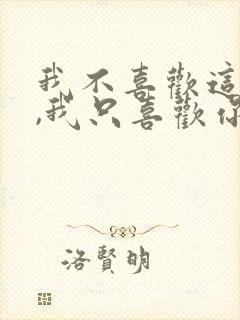 我不喜歡這
,我只喜歡你
洛賢明